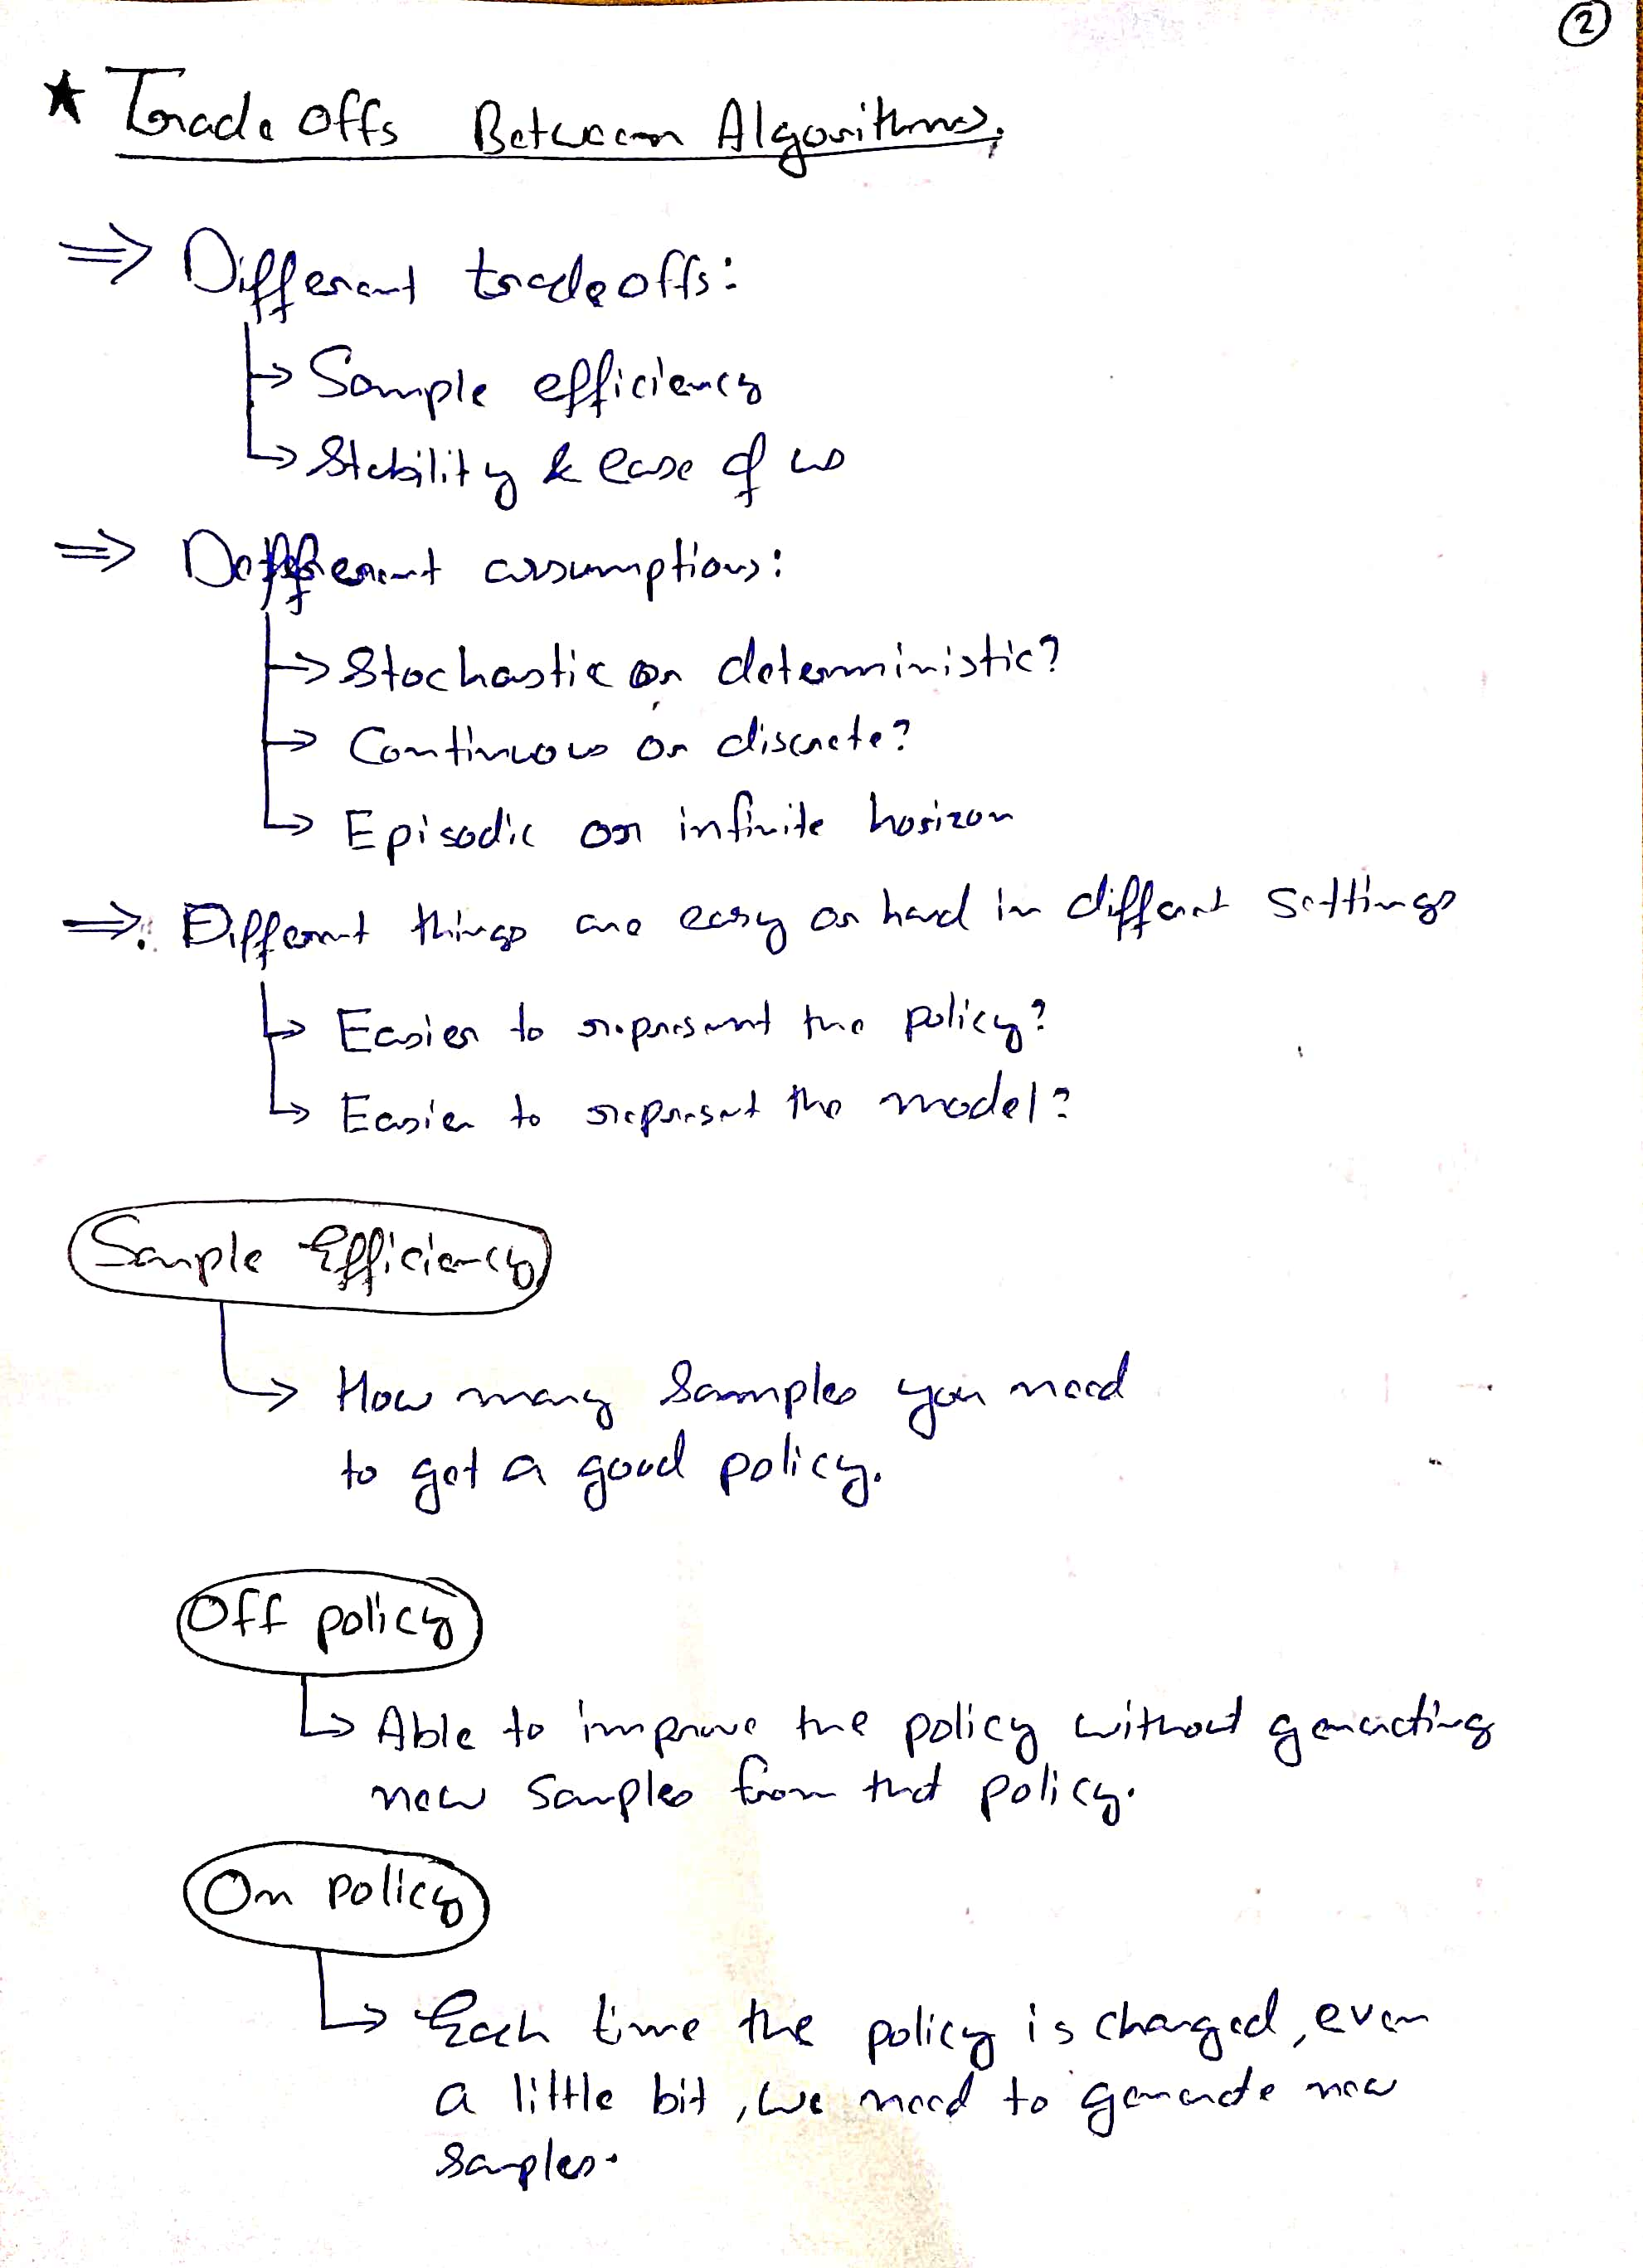 2
★ Trade Offs Between Algorithms.
⇒ Different tradeoffs:
↳ Sample efficiency
↳ Stability & ease of us
⇒ Different assumptions:
↳ Stochastic or deterministic?
↳ Continuous or discrete?
↳ Episodic or infinite horizon
⇒ Different things are easy or hard in different settings
↳ Easier to represent the policy?
↳ Easier to represent the model?
Sample Efficiency
↳ How many samples you need
to get a good policy.
Off policy
↳ Able to improve the policy without generating
new samples from that policy.
On policy
↳ Each time the policy is changed, even
a little bit, we need to generate new
samples.